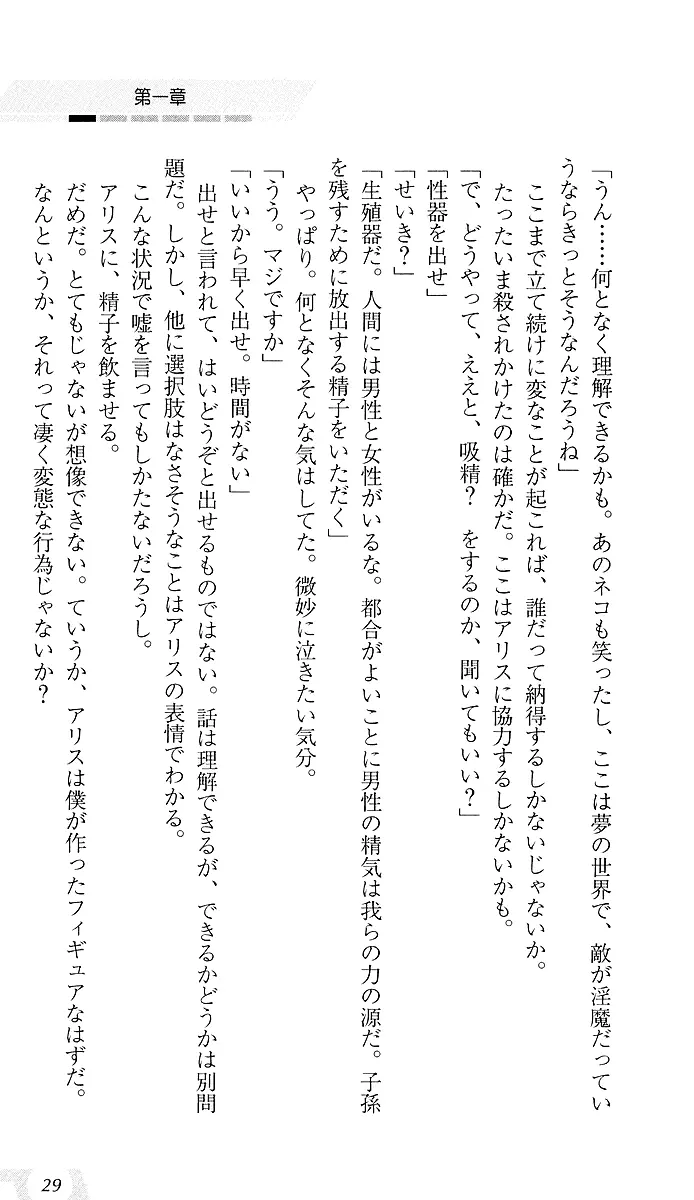 第一章
「うん……何となく理解できるかも。あのネコも笑ったし、ここは夢の世界で、敵が淫魔だってい
うならきっとそうなんだろうね」
ここまで立て続けに変なことが起これば、誰だって納得するしかないじゃないか。
たったいま殺されかけたのは確かだ。ここはアリスに協力するしかないかも。
「で、どうやって、ええと、吸精？　をするのか、聞いてもいい？」
「性器を出せ」
「せいき？」
「生殖器だ。人間には男性と女性がいるな。都合がよいことに男性の精気は我らの力の源だ。子孫
を残すために放出する精子をいただく」
やっぱり。何となくそんな気はしてた。微妙に泣きたい気分。
「うう。マジですか」
「いいから早く出せ。時間がない」
出せと言われて、はいどうぞと出せるものではない。話は理解できるが、できるかどうかは別問
題だ。しかし、他に選択肢はなさそうなことはアリスの表情でわかる。
こんな状況で嘘を言ってもしかたないだろうし。
アリスに、精子を飲ませる。
だめだ。とてもじゃないが想像できない。ていうか、アリスは僕が作ったフィギュアなはずだ。
なんというか、それって凄く変態な行為じゃないか？
29